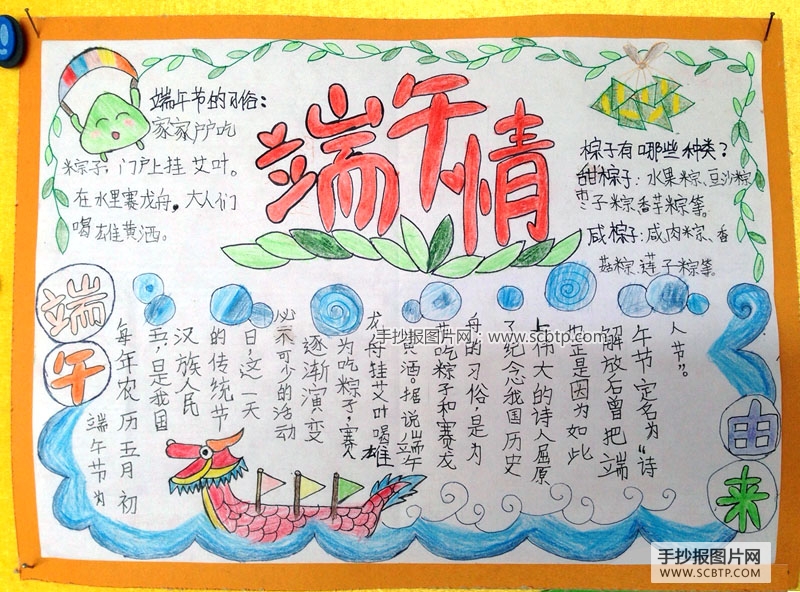 端午情
端午节的习俗：
家家户户吃
粽子，门户上挂艾叶。
在水里赛龙舟，大人们
喝雄黄酒。
粽子有哪些种类？
甜粽子：水果粽、豆沙粽
枣子粽、香芋粽等。
咸粽子：咸肉粽、香
菇粽、莲子粽等。
端午
由来
端午节为
每年农历五月初
五，是我国
汉族人民
的传统节
日，这一天
必不可少的活动
逐渐演变
为吃粽子，赛
龙舟挂艾叶喝雄
黄酒。据说端午
节吃粽子和赛龙
舟的习俗，是为
了纪念我国历史
上伟大的诗人屈原
也正是因为如此
解放后曾把端
午节定名为“诗
人节”。
手抄报图片网：www.scbtp.com
手抄报图片网
WWW.SCBTP.COM